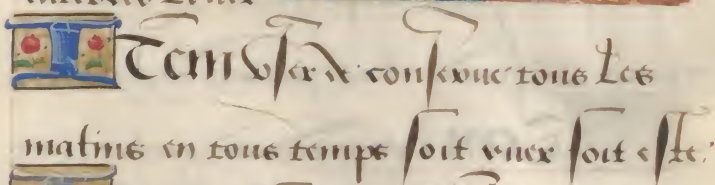 Item user de conserue tous les
matins en tous temps soit yuer soit este.